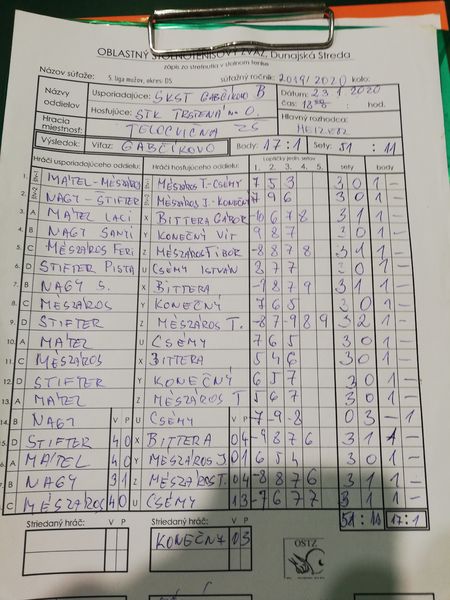 OBLASTNÝ STOLNOTENISOVÝ ZVÄZ, Dunajská Streda
zápis zo stretnutia v stolnom tenise
Názov súťaže: 5. liga mužov, okres: DS súťažný ročník: 2019/2020 kolo:
Názvy oddielov Usporiadajúce: ŠKST GABČÍKOVO B Dátum: 23 1 2020
Hosťujúce: STK TRSTENÁ n. O. čas: 18 hod.
Hracia miestnosť: TELOCVIČNA ZŠ Hlavný rozhodca:
Výsledok: Víťaz: GABČÍKOVO Body: 17:1 Sety: 51:11
Hráči usporiadajúceho oddielu: Hráči hosťujúceho oddielu: Loptičky jedn. setov 1. 2. 3. 4. 5. sety body
1. MÁTEL-MÉSZÁROS MÉSZÁROS T.-CSÉMY 7 5 3 3 0 1 -
2. NAGY-STIFTER MÉSZÁROS J-KONEČNÝ 7 9 6 3 0 1 -
3. A MÁTEL LACI X BITTERA GÁBOR -10 6 7 8 3 1 1 -
4. B NAGY SANYI Y KONEČNÝ VÍT 9 8 7 3 0 1 -
5. C MÉSZÁROS FERI Z MÉSZÁROS TIBOR -8 8 7 8 3 1 1 -
6. D STIFTER PISTA U CSÉMY ISTVÁN 8 7 7 3 0 1 -
7. B NAGY S. X BITTERA -9 8 7 9 3 1 1 -
8. C MÉSZÁROS Y KONEČNÝ 7 6 5 3 0 1 -
9. D STIFTER Z MÉSZÁROS T. -8 7 -9 8 9 3 2 1 -
10. A MÁTEL U CSÉMY 7 6 5 3 0 1 -
11. C MÉSZÁROS X BITTERA 5 4 6 3 0 1 -
12. D STIFTER Y KONEČNÝ 6 5 7 3 0 1 -
13. A MÁTEL Z MÉSZÁROS T 6 5 7 3 0 1 -
14. B NAGY V P U CSÉMY V P -7 -9 -8 0 3 - 1
15. D STIFTER 4 0 X BITTERA 0 4 -9 8 7 6 3 1 1 -
A MÁTEL 4 0 Y MÉSZÁROS J 0 1 6 5 4 3 0 1 -
B NAGY 3 1 Z MÉSZÁROS T. 0 4 -8 8 7 6 3 1 1 -
C MÉSZÁROS 4 0 U CSÉMY 1 3 -7 6 7 7 3 1 1 -
Striedaný hráč: V P Striedaný hráč: V P 51:11 17:1
KONEČNÝ 1 3
OSTZ